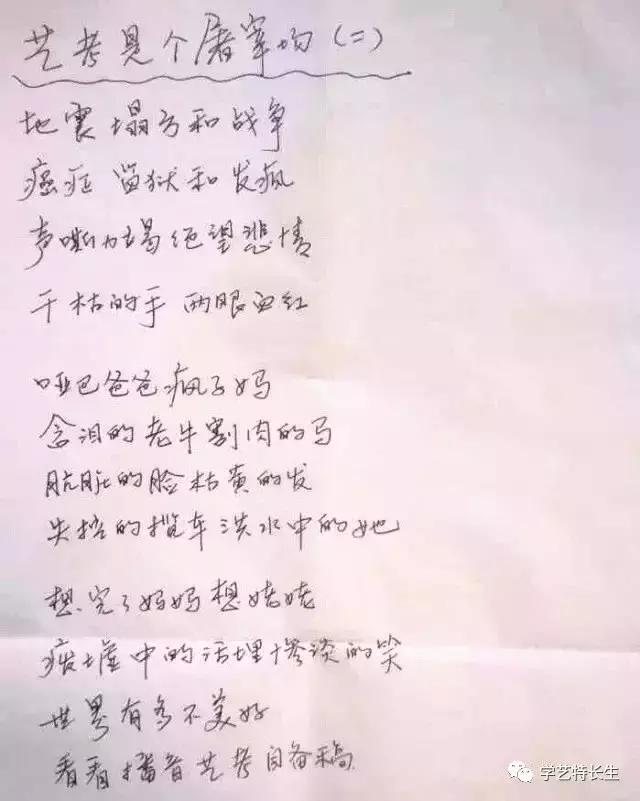 艺考是个屠宰场(二)
地震塌方和战争
癌症 监狱和发疯
声嘶力竭绝望悲情
干枯的手 两眼血红
哑巴爸爸疯子妈
含泪的老牛割肉的马
肮脏的脸枯黄的发
失控的揽车洪水中的她
想完了妈妈想姥姥
废墟中的活埋惨淡的笑
世界有多不美好
看看播音艺考自备稿
学艺特长生